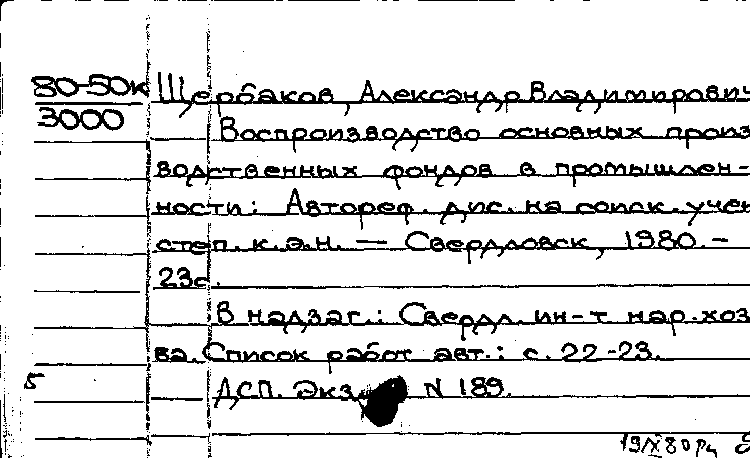 80-50к Щербаков, Александр Владимирович
3000
Воспроизводство основных произ
водственных фондов в промышлен-
ности: Автореф. дис. на соиск. учен
степ. к.э.н. — Свердловск, 1980.-
23с.
В надзаг.: Свердл. ин-т нар.хоз
ва. Список работ авт.: с. 22-23.
5 ДСП. Экз. N 189.
19/IX 80